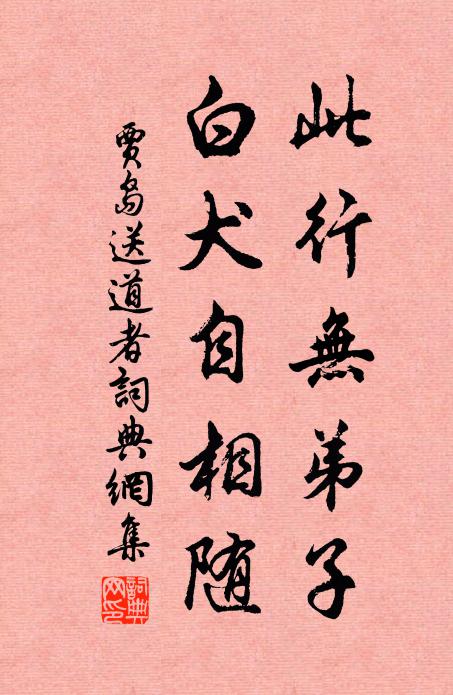 此行無弟子
白犬自相随
賈島送道者詞典網集
詞典网印